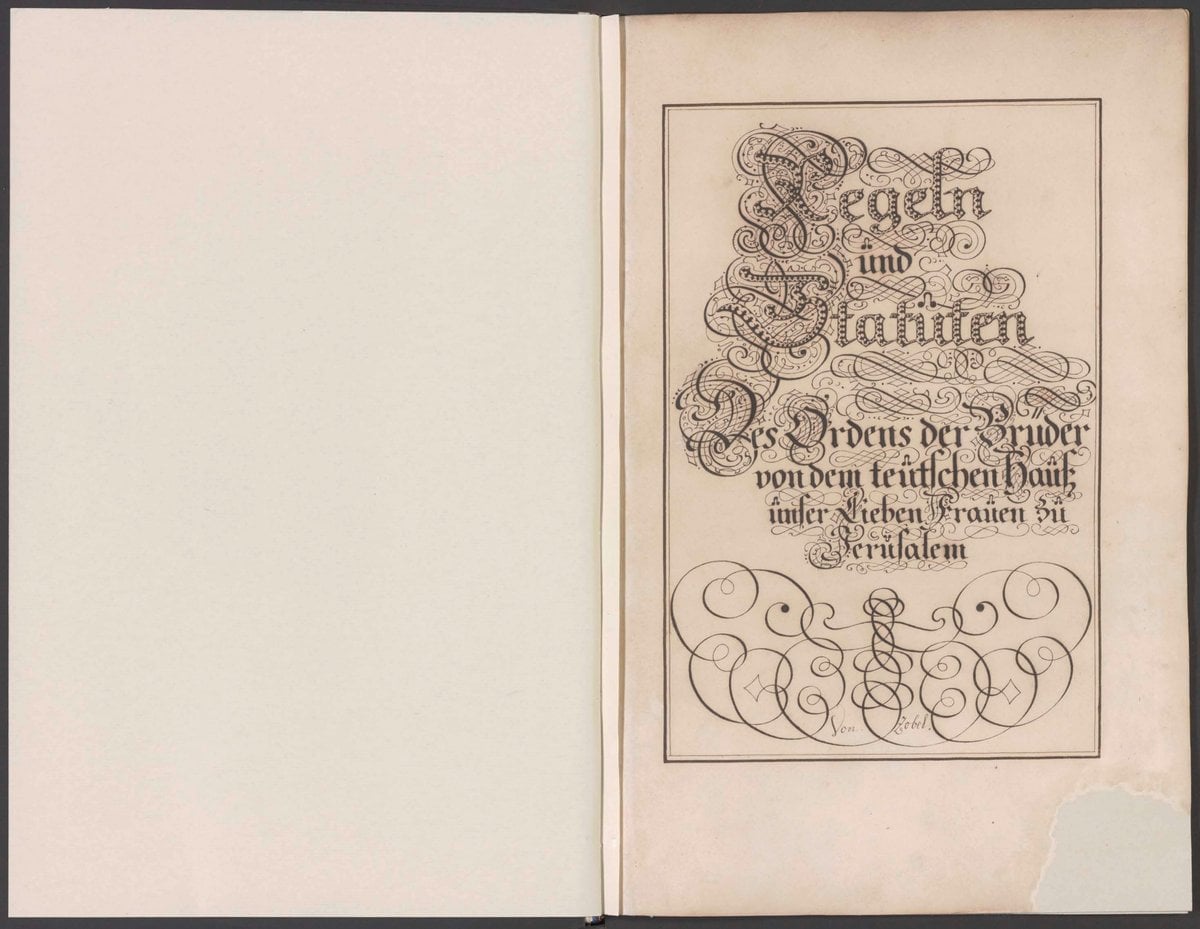 Regeln
ünd
Statüten
Des Ordens der Brüder
von dem teütschen Haüß
ünser Lieben Fraüen zü
Jerüsalem
Von Zobel.